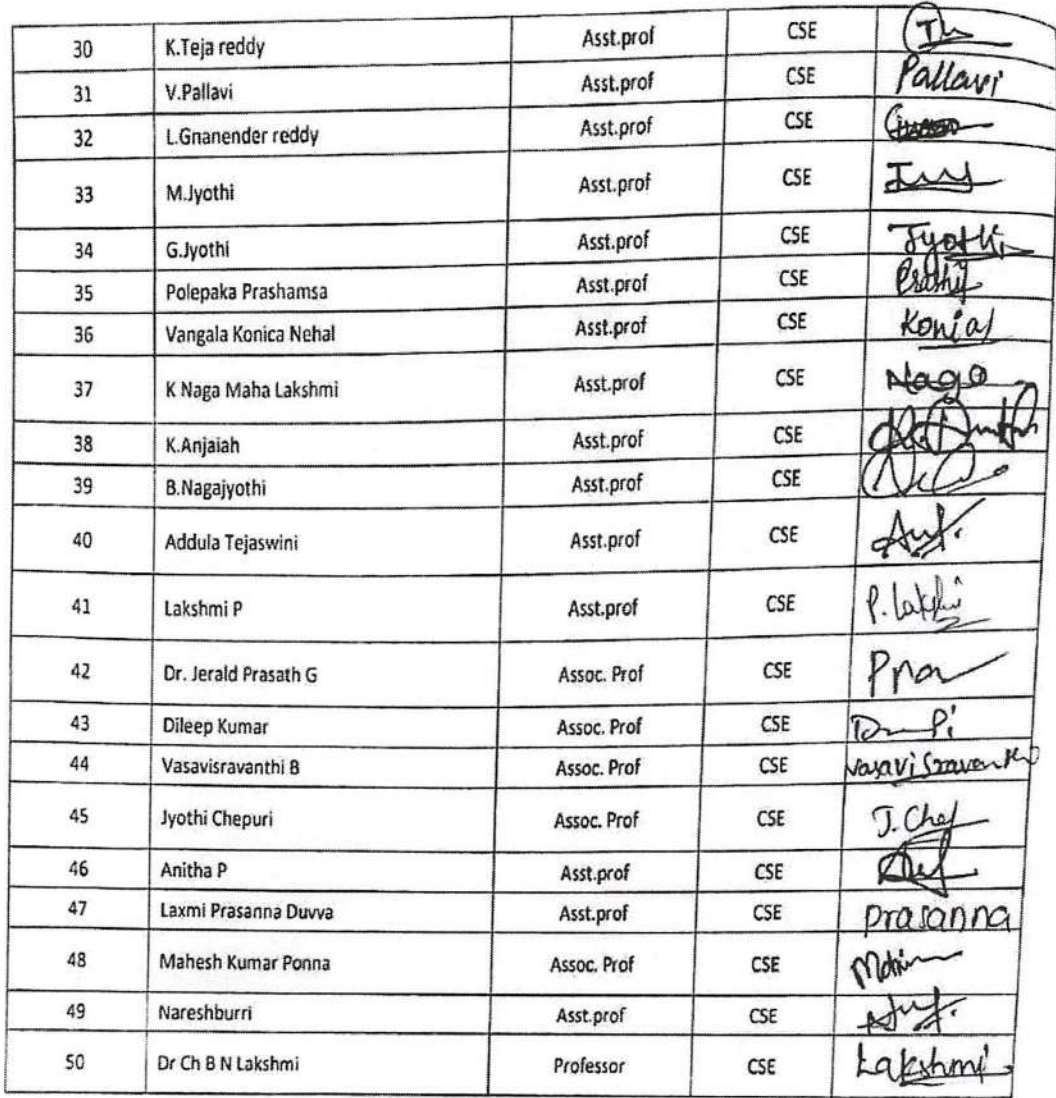 30 K.Teja reddy Asst.prof CSE
31 V.Pallavi Asst.prof CSE Pallavi
32 L.Gnanender reddy Asst.prof CSE
33 M.Jyothi Asst.prof CSE
34 G.Jyothi Asst.prof CSE Jyothi
35 Polepaka Prashamsa Asst.prof CSE
36 Vangala Konica Nehal Asst.prof CSE
37 K Naga Maha Lakshmi Asst.prof CSE Naga
38 K.Anjaiah Asst.prof CSE
39 B.Nagajyothi Asst.prof CSE
40 Addula Tejaswini Asst.prof CSE
41 Lakshmi P Asst.prof CSE
42 Dr. Jerald Prasath G Assoc. Prof CSE
43 Dileep Kumar Assoc. Prof CSE
44 Vasavisravanthi B Assoc. Prof CSE
45 Jyothi Chepuri Assoc. Prof CSE
46 Anitha P Asst.prof CSE
47 Laxmi Prasanna Duvva Asst.prof CSE prasanna
48 Mahesh Kumar Ponna Assoc. Prof CSE
49 Nareshburri Asst.prof CSE
50 Dr Ch B N Lakshmi Professor CSE Lakshmi